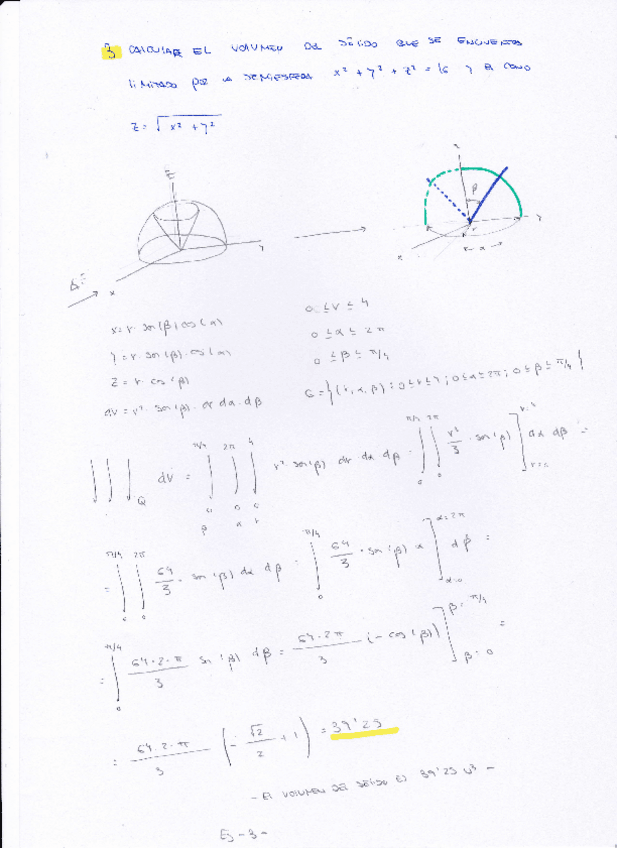 3 CALCULAR EL VOLUMEN DEL SÓLIDO QUE SE ENCUENTRA
LIMITADO POR LA SEMIESFERA x² + y² + z² = 16 Y EL CONO
z = √(x² + y²)
z
y
x
z
β
y
x
r
α
x = r · sen(β) cos(α)
y = r · sen(β) · cos(α)
z = r · cos(β)
dv = r² · sen(β) · dr dα · dβ
0 ≤ r ≤ 4
0 ≤ α ≤ 2π
0 ≤ β ≤ π/4
G = {(r, α, β) : 0 ≤ r ≤ 4 ; 0 ≤ α ≤ 2π ; 0 ≤ β ≤ π/4}
∫∫∫_Q dv = ∫_0^{π/4} ∫_0^{2π} ∫_0^4 r² sen(β) dr dα dβ = ∫_0^{π/4} ∫_0^{2π} r³/3 · sen(β)]_{r=0}^{r=4} dα dβ =
β α r
= ∫_0^{π/4} ∫_0^{2π} 64/3 · sen(β) dα dβ = ∫_0^{π/4} 64/3 · sen(β) α]_{α=0}^{α=2π} dβ =
= ∫_0^{π/4} 64·2·π/3 sen(β) dβ = 64·2π/3 (- cos(β))]_{β=0}^{β=π/4} =
= 64·2·π/3 (- √2/2 + 1) = 39'25
- EL VOLUMEN DEL SÓLIDO ES 39'25 u³ -
Ej - 3 -